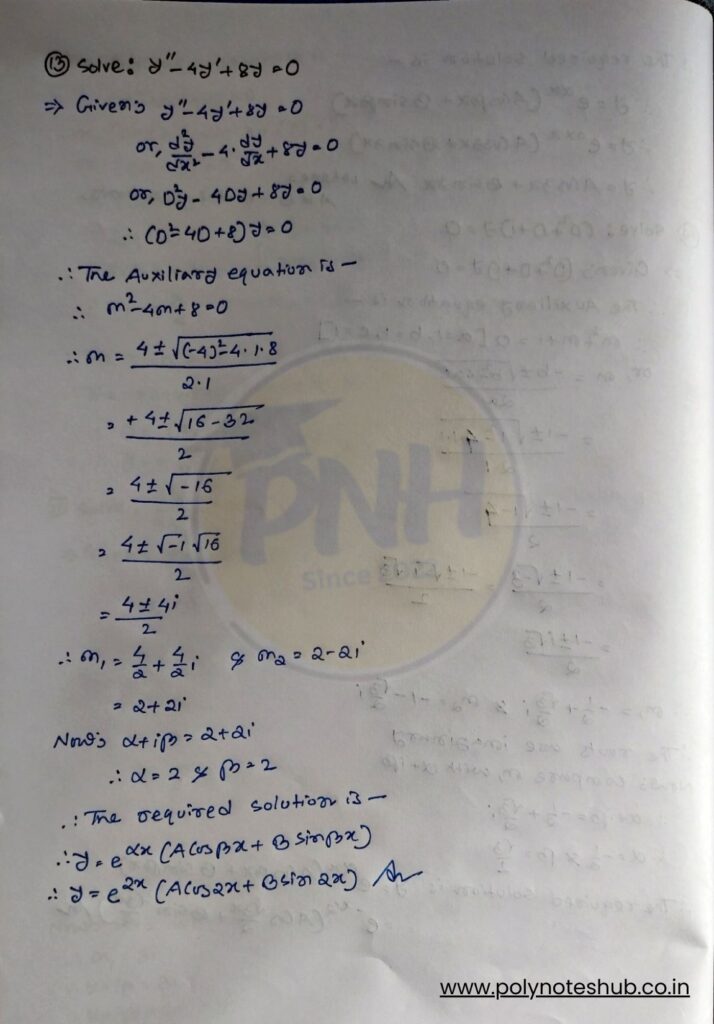 ⑬ Solve: y'' - 4y' + 8y = 0
⇒ Given: y'' - 4y' + 8y = 0
or, d²y/dx² - 4·dy/dx + 8y = 0
or, D²y - 4Dy + 8y = 0
∴ (D² - 4D + 8) y = 0
∴ The Auxiliary equation is —
∴ m² - 4m + 8 = 0
∴ m = (4 ± √((-4)² - 4·1·8))/(2·1)
= (+4 ± √(16 - 32))/2
= (4 ± √-16)/2
= (4 ± √-1 √16)/2
= (4 ± 4i)/2
∴ m₁ = 4/2 + 4/2 i & m₂ = 2 - 2i
= 2 + 2i
Now, α + iβ = 2 + 2i
∴ α = 2 & β = 2
∴ The required solution is —
∴ y = e^αx (A cos βx + B sin βx)
∴ y = e^2x (A cos 2x + B sin 2x) Ans
PNH
Since
www.polynoteshub.co.in